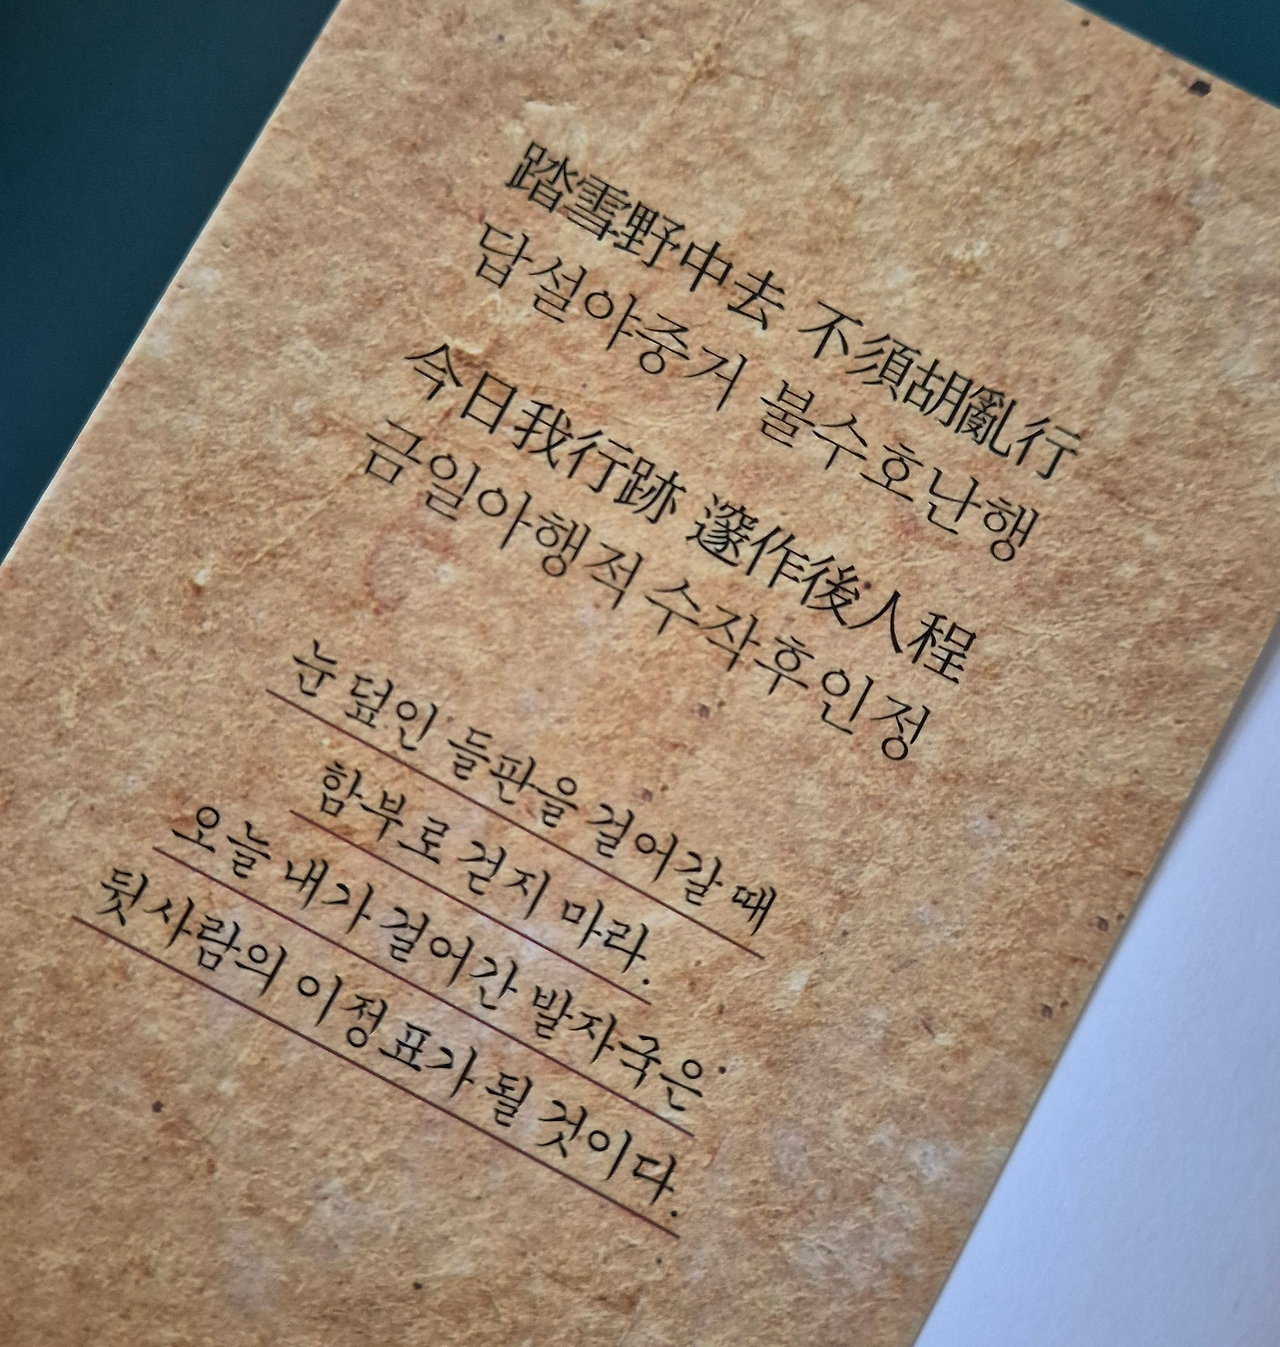 踏雪野中去 不須胡亂行
답설야중거 불수호난행
今日我行跡 邃作後人程
금일아행적 수작후인정
눈 덮인 들판을 걸어갈 때
함부로 걷지 마라.
오늘 내가 걸어간 발자국은
뒷사람의 이정표가 될 것이다.